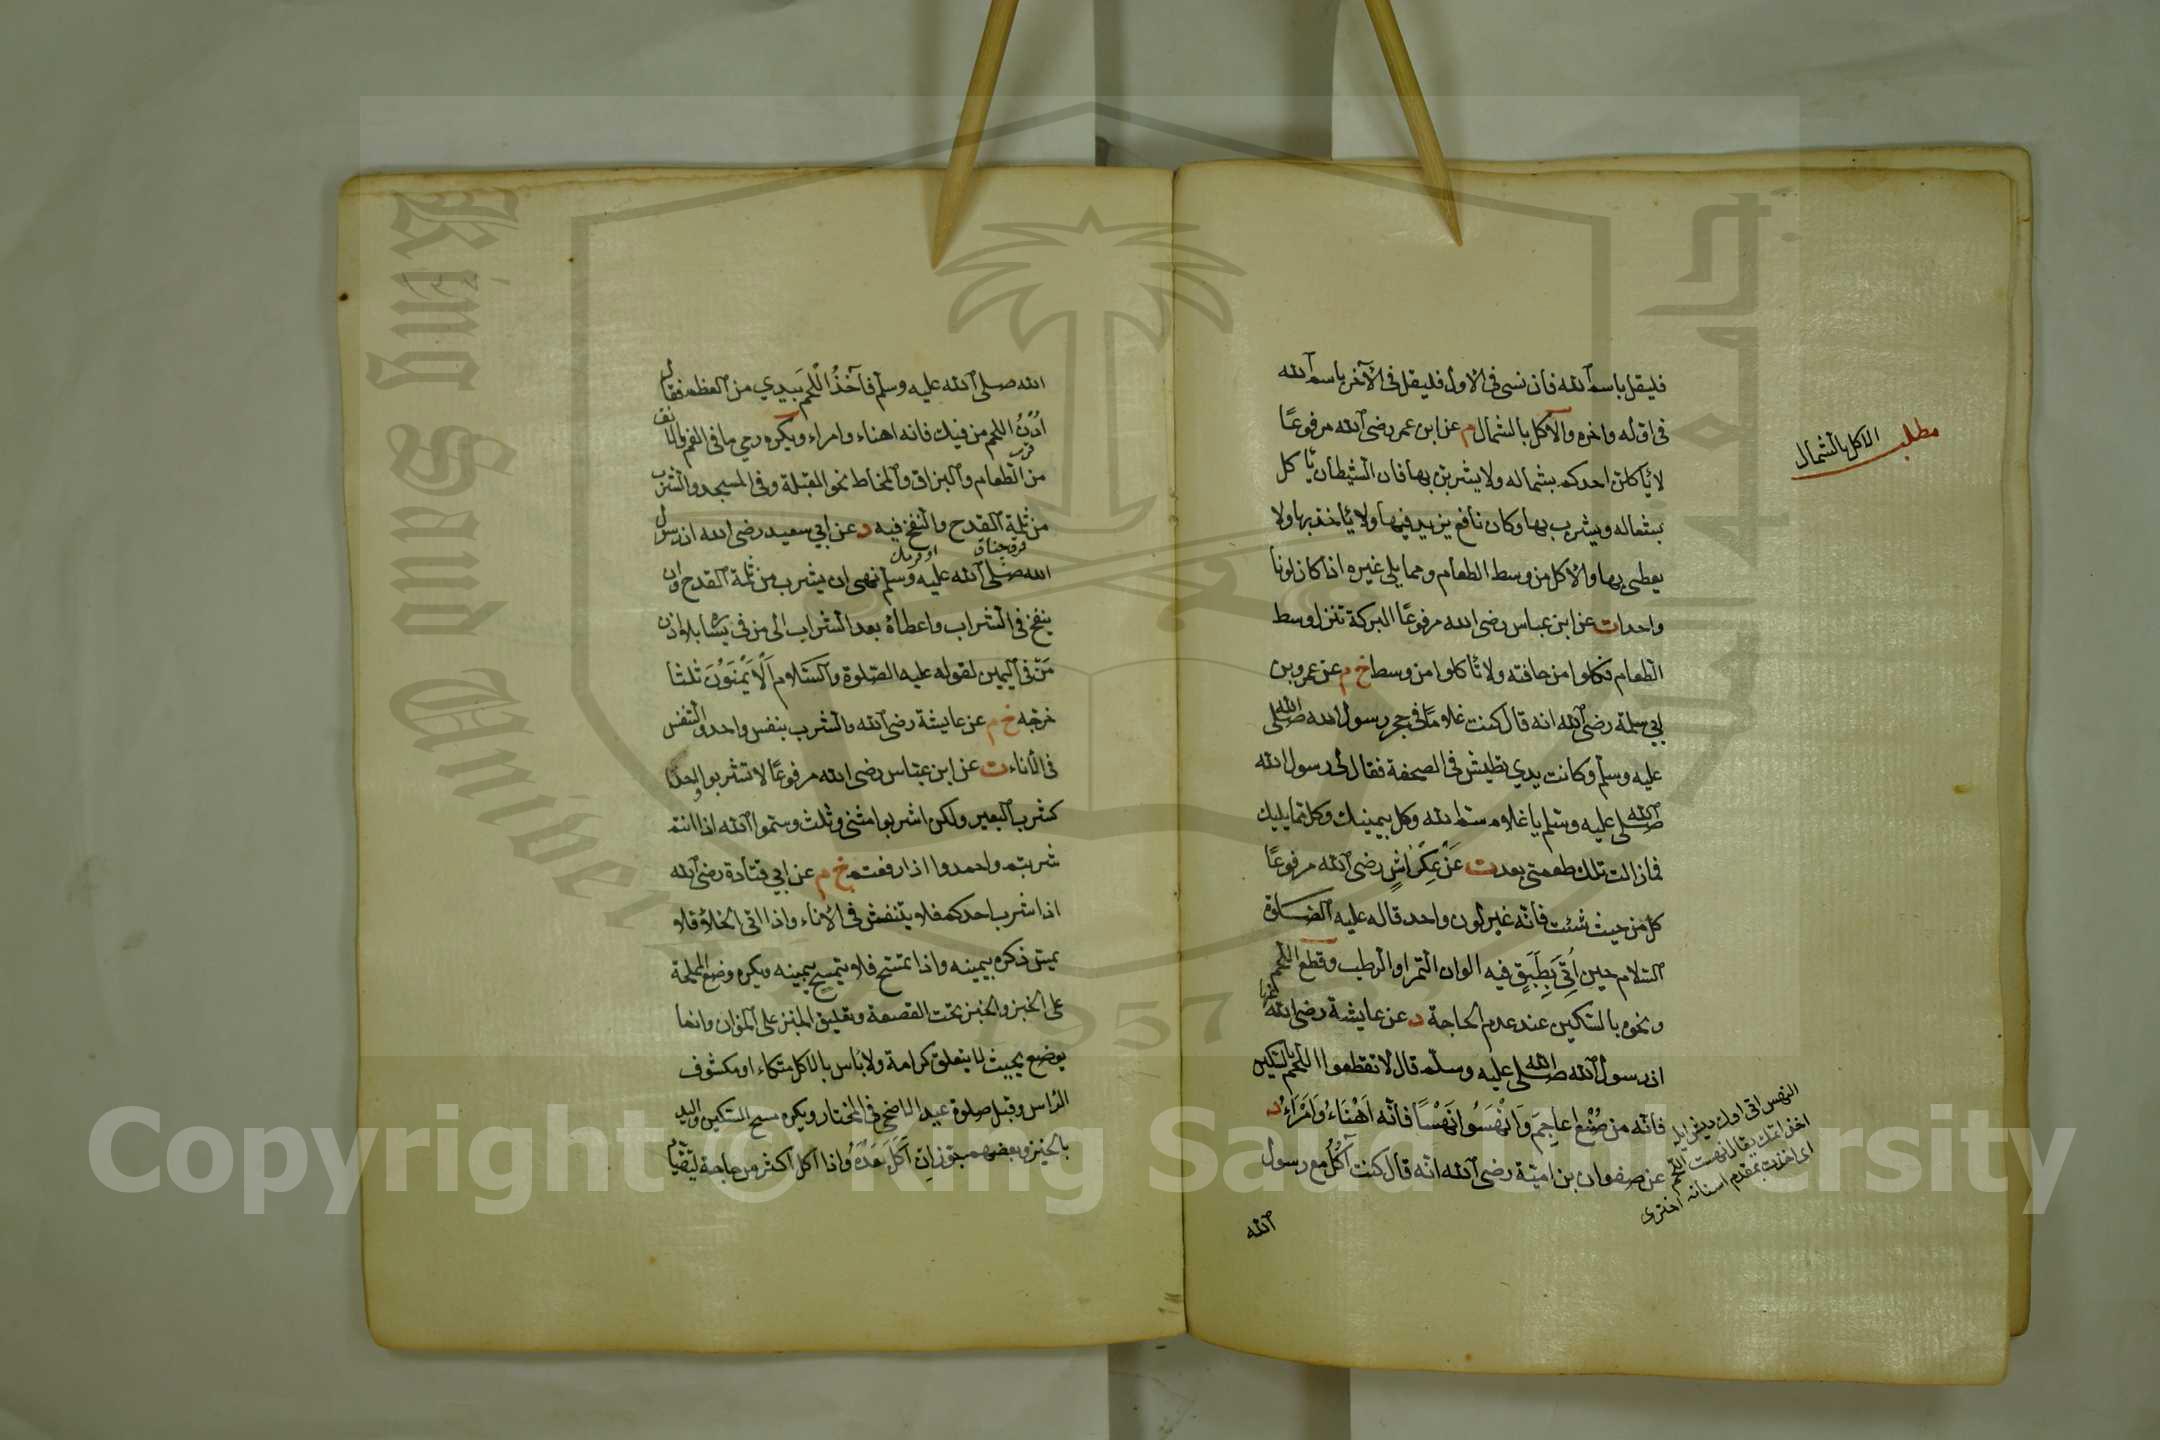 فليقل باسم الله فان نسى فى الاول فليقل فى الآخر باسم الله
فى اوله واخره والاكل بالشمال م عن ابن عمر رضى الله مرفوعًا
لا يأكلن احدكم بشماله ولا يشربن بها فان الشيطان يأكل
بشماله ويشرب بها وكان نافع يزيد فيها ولا يأخذ بها ولا
يعطى بها والاكل من وسط الطعام ومما يلى غيره اذا كان لونا
واحدا ت عن ابن عباس رضى الله مرفوعًا البركة تنزل وسط
الطعام فكلوا من حافته ولا تأكلوا من وسط خ م عن عمرو بن
ابي سلمة رضى الله انه قال كنت غلاما فى حجر رسول الله صلى الله
عليه وسلم وكانت يدي تطيش فى الصحفة فقال لى رسول الله
صلى الله عليه وسلم يا غلام سم الله وكل بيمينك وكل مما يليك
فما زالت تلك طعمتى بعد ت عن عِكْرَاشٍ رضى الله مرفوعًا
كل من حيث شئت فانه غير لون واحد قاله عليه الصلوة
السلام حين اُتِىَ بِطَبَقٍ فيه الوان التمر او الرطب وقطع اللحم
ونحوه بالسكين عند عدم الحاجة د عن عايشة رضى الله
ان رسول الله صلى الله عليه وسلم قال لا تقطعوا اللحم بالسكين
فانه من صُنْعِ عاجِمَ وَانْهَسُوا نَهْسًا فانه اَهْنَاءُ وَامْرَاءُ د
عن صفوان بن امية رضى الله انه قال كنت آكل مع رسول
الله
مطلب الاكل بالشمال
اخذ اللحم يقال نهست اللحم
اى اخذت بمقدم اسنانه اخترى
الله صلى الله عليه وسلم فآخُذُ اللحم بيدي من العظم فقال
ادْنُ اللحم من فيك فانه اهناء وامراء ويكره رمي ما فى الفم والانف
من الطعام والبزاق والمخاط نحو القبلة وفى المسجد والشرب
من ثلمة القدح والنفخ فيه د عن ابي سعيد رضى الله ان رسول
الله صلى الله عليه وسلم نهى ان يشرب من ثلمة القدح وان
ينفخ فى الشراب واعطاؤه بعد الشراب الى من فى يساره بلا اذن
مَنْ فى اليمين لقوله عليه الصلوة والسلام اَلْاَيْمَنُونَ ثلثا
خرجه خ م عن عايشة رضى الله والشرب بنفس واحد والتنفس
فى الاناء ت عن ابن عباس رضى الله مرفوعًا لا تشربوا واحدا
كشرب البعير ولكن اشربوا مثنى وثلث وسموا الله اذا انتم
شربتم واحمدوا اذا رفعتم خ م عن ابي قتادة رضى الله
اذا شرب احدكم فلا يتنفس فى الاناء واذا اتى الخلاء فلا
يمس ذكره بيمينه واذا تمسح فلا يتمسح بيمينه ويكره وضع المملحة
على الخبز والخبز تحت القصعة وتعليق الخبز على الخوان وانما
يوضع بحيث لا يتعلق كرامة ولا بأس بالاكل متكاء او مكشوف
الرأس وقبل صلوة عيد الاضحى فى المختار ويكره مسح السكين واليد
بالخبز وبعضهم جوز ان اَكَلَ بَعْدَهُ واذا اكل اكثر من حاجة ليتقيأ
Copyright © King Saud University
King Saud University
1957